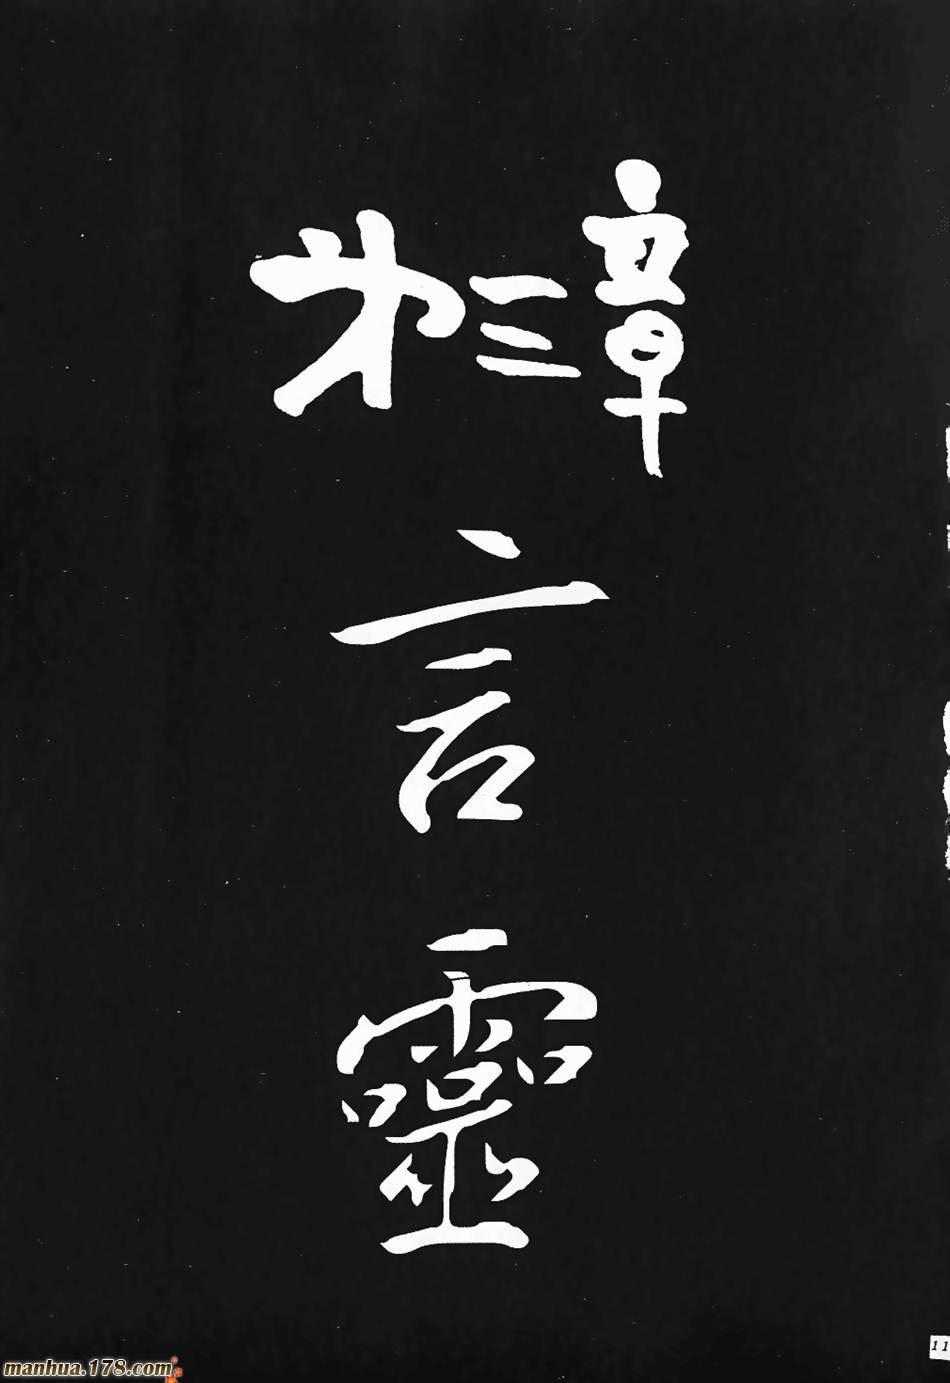 第三章
言靈
11
manhua.178.com